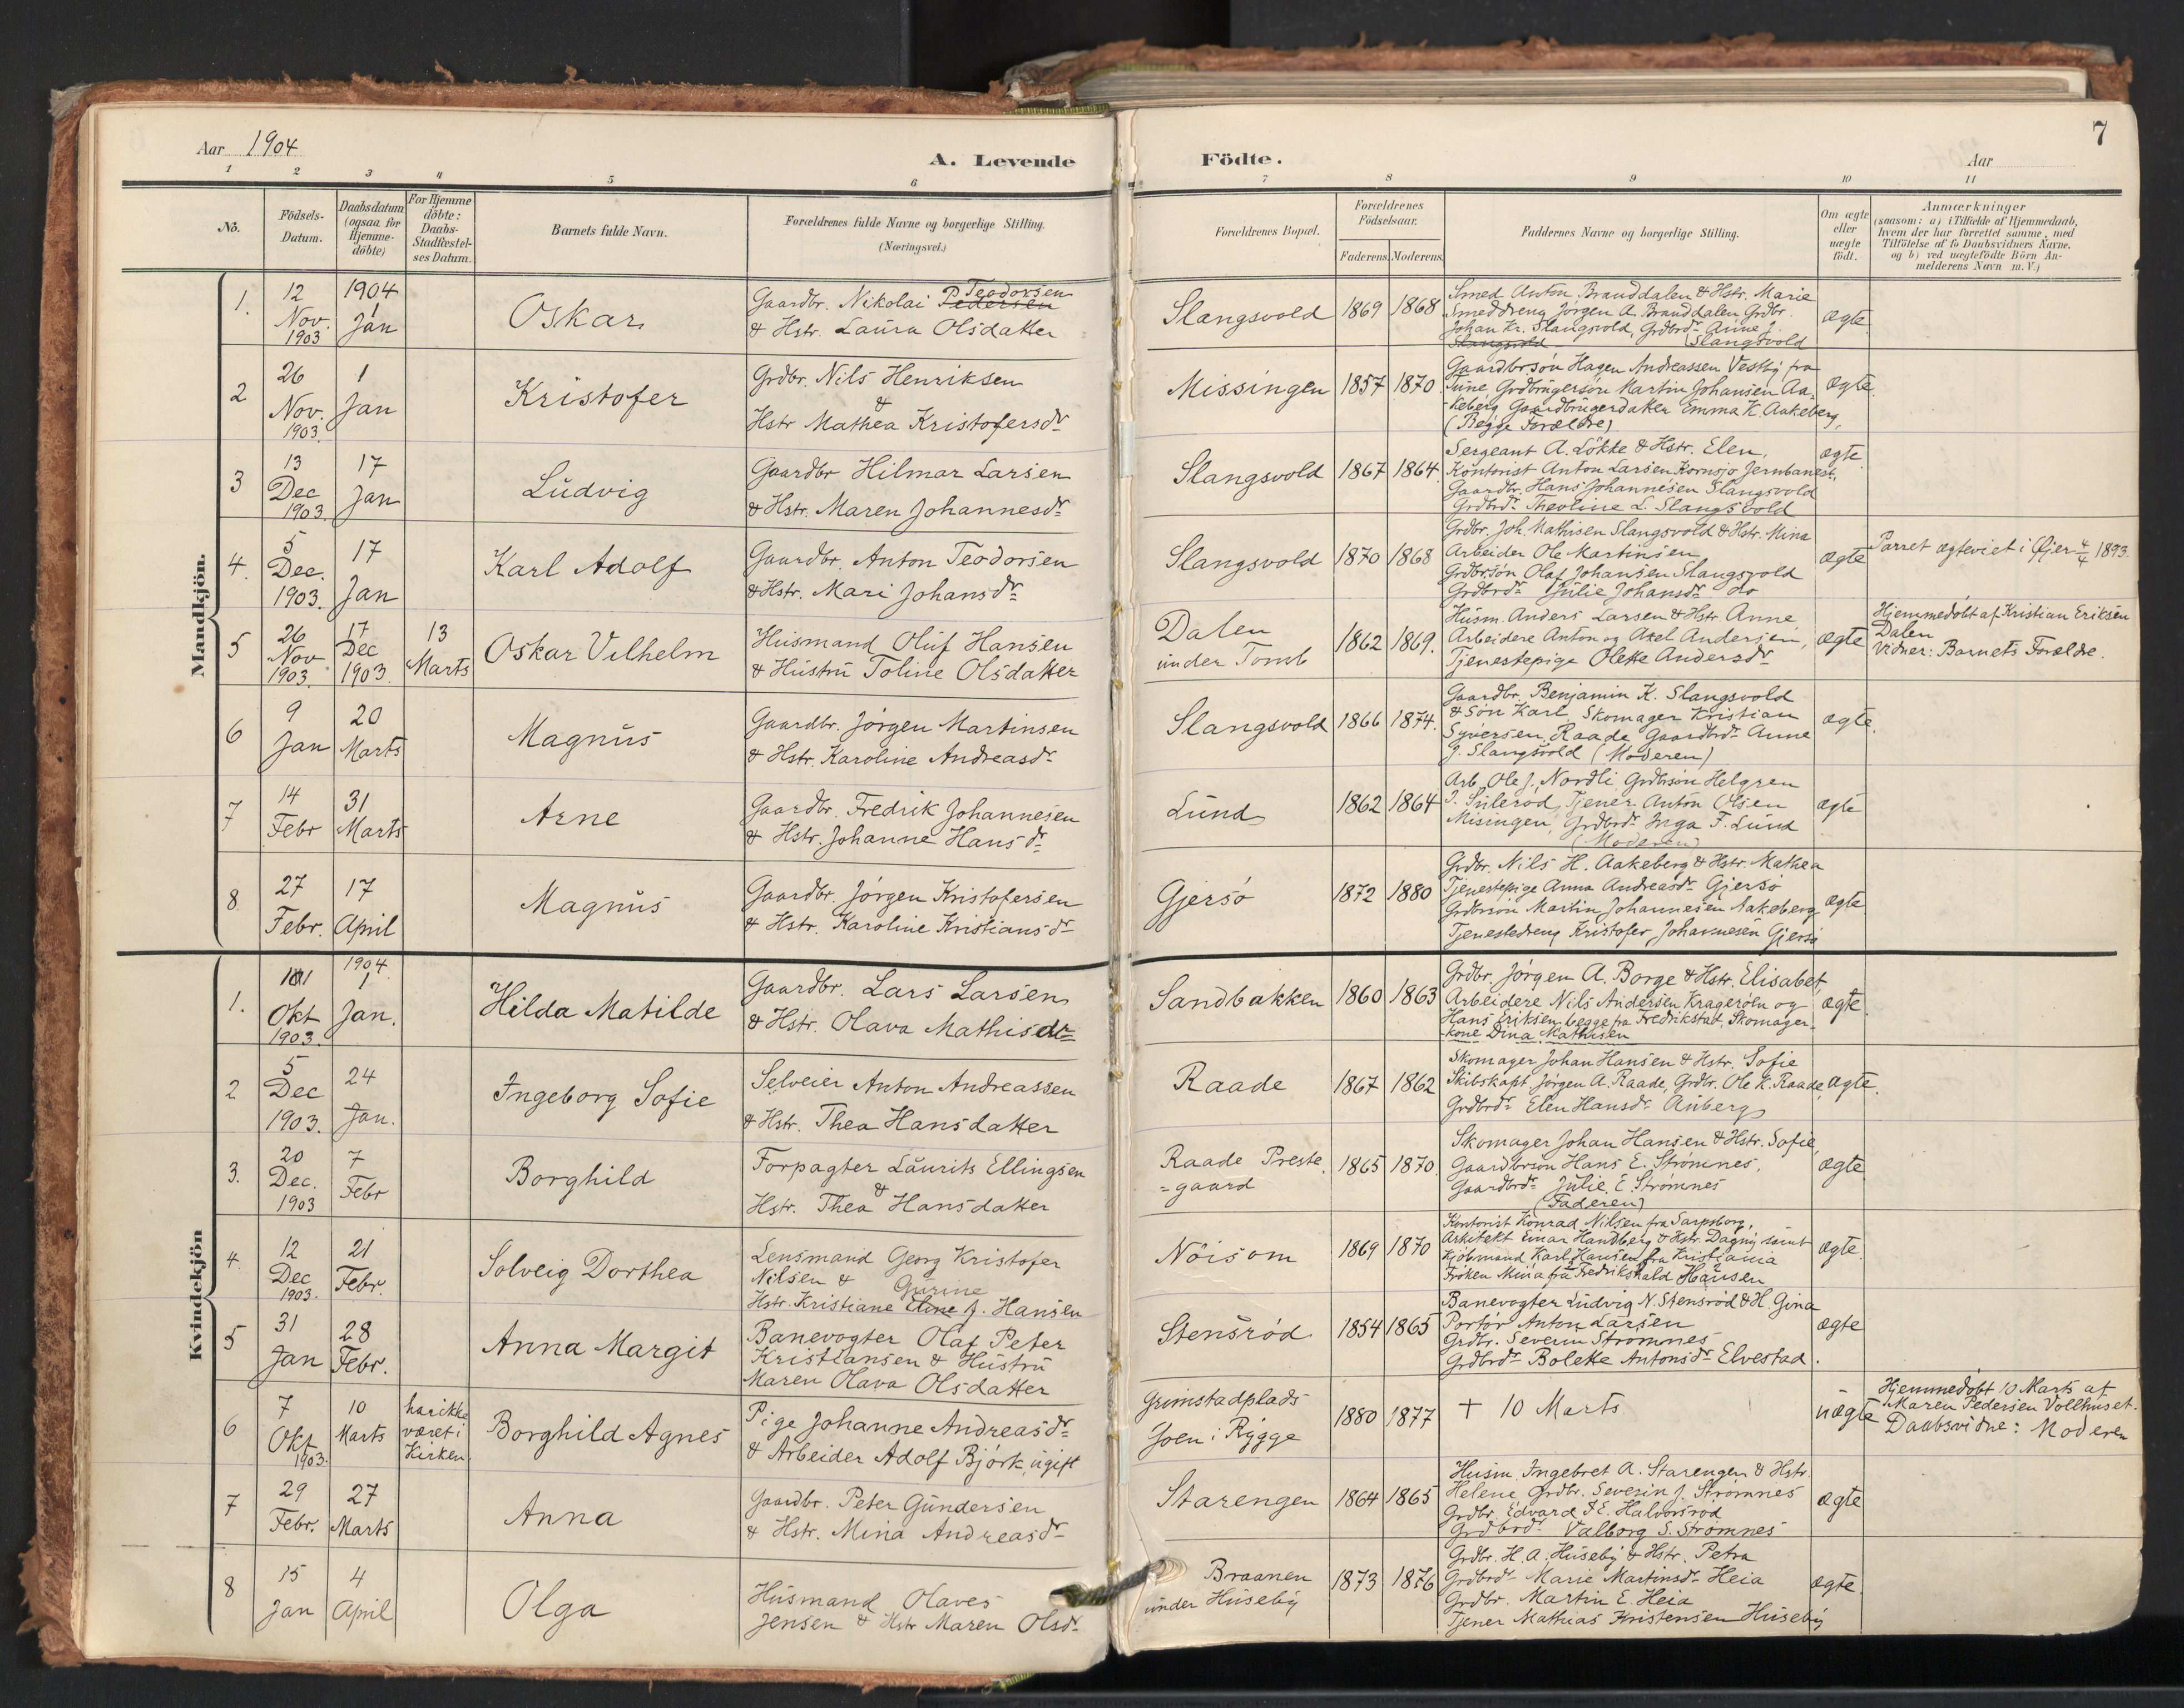 Aar 1904
A. Levende Födte.
Aar
7
1 2 3 4 5 6 7 8 9 10 11
No.
Födsels-Datum.
Daabsdatum (ogsaa for Hjemme-döbte)
For Hjemme döbte: Daabs-Stadfæstel-ses Datum.
Barnets fulde Navn.
Forældrenes fulde Navne og borgerlige Stilling. (Næringsvei.)
Forældrenes Bopæl.
Forældrenes Födselsaar.
Faderens. Moderens.
Faddernes Navne og borgerlige Stilling.
Om ægte eller uægte födt.
Anmærkninger
(saasom: a) i Tilfælde af Hjemmedaab,
hvem der har forrettet samme, med
Tilföielse af to Daabsvidners Navne.
og b) ved uægtefödte Börn An-
melderens Navn m. V.)
Mandkjön.
1.
12 Nov. 1903
1904 1 Jan
Oskar
Gaardbr. Nikolai Pedersen Teodorsen
& Hstr. Laura Olsdatter
Slangsvold
1869 1868
Smed Anton Branddalen & Hstr. Marie
Smeddreng Jørgen A. Branddalen Grdbr.
Johan Kr. Slangsvold, Grdbrdr Anne J.
Slangsvold Slangsvold
ægte
2
26 Nov. 1903.
1 Jan
Kristofer
Grdbr. Nils Henriksen
&
Hstr Mathea Kristofersdr
Missingen
1857 1870
Gaardbr.søn Hagen Andreassen Vestby fra
Tune Grdbrugersøn Martin Johansen Aa-
keberg Gaardbrugerdatter Emma K. Aakeberg,
(Begge Forældre)
ægte.
3
13 Dec 1903.
17 Jan
Ludvig
Gaardbr Hilmar Larsen
& Hstr. Maren Johannesdr
Slangsvold
1867 1864.
Sergeant A. Løkke & Hstr. Elen,
Kontorist Anton Larsen Kornsjø Jernbanest,
Gaardbr. Hans Johannesen Slangsvold
Grdbrdr Theoline L. Slangsvold
ægte
4.
5 Dec. 1903.
17 Jan
Karl Adolf
Gaardbr. Anton Teodorsen
& Hstr. Mari Johansdr
Slangsvold
1870 1868
Grdbr. Joh. Mathisen Slangsvold & Hstr. Mina
Arbeider Ole Martinsen
Grdbrsøn Olaf Johansen Slangsvold
Grdbrdr Julie Johansdr do
ægte
Parret ægteviet i Øjer 4/4 1893.
5
26 Nov 1903.
17 Dec 1903.
13 Marts
Oskar Vilhelm
Husmand Oluf Hansen
& Hustru Toline Olsdatter
Dalen
under Tomb
1862 1869.
Husm. Anders Larsen & Hstr Anne
Arbeidere Anton og Axel Andersen,
Tjenestepige Olette Andersdr
ægte
Hjemmedøbt af Kristian Eriksen
Dalen
Vidner: Barnets Forældre.
6
9 Jan
20 Marts
Magnus
Gaardbr. Jørgen Martinsen
& Hstr. Karoline Andreasdr
Slangsvold
1866 1874.
Gaardbr. Benjamin K. Slangsvold
& Søn Karl, Skomager Kristian
Syversen, Raade Gaardbrdr Anne
J. Slangsvold (Moderen)
ægte.
7
14 Febr
31 Marts
Arne
Gaardbr. Fredrik Johannesen
& Hstr. Johanne Hansdr
Lund
1862 1864
Arb. Ole J. Nordli Grdbrsøn Helgren
Tjener Anton Olsen
Misingen, Grdbrdr Inga F. Lund
(Moderen)
ægte
8
27 Febr.
17 April
Magnus
Gaardbr. Jørgen Kristofersen
& Hstr. Karoline Kristiansdr
Gjersø
1872 1880
Grdbr. Nils H. Aakeberg & Hstr. Mathea
Tjenestepige Anna Andreasdr Gjersø
Grdbrsøn Martin Johannesen Aakeberg
Tjenestedreng Kristofer Johannesen Gjersø
ægte
Kvindekjön
1.
Okt 1903.
1904 1 Jan.
Hilda Matilde
Gaardbr. Lars Larsen
& Hstr. Olava Mathisdr
Sandbakken
1860 1863
Grdbr. Jørgen A. Borge & Hstr. Elisabet
Arbeidere Nils Andersen Kragerøen og
Hans Eriksen, begge fra Fredrikstad, Skomager-
kone Dina Mathisen
ægte
2
5 Dec 1903.
24 Jan.
Ingeborg Sofie
Selveier Anton Andreassen
& Hstr. Thea Hansdatter
Raade
1867 1862
Skomager Johan Hansen & Hstr. Sofie
Skibskapt. Jørgen A. Raade, Grdbr. Ole K. Raade,
Grdbrdr Elen Hansdr Auberg
ægte.
3.
20 Dec. 1903
7 Febr
Borghild
Forpagter Laurits Ellingsen
&
Hstr. Thea Hansdatter
Raade Preste
=gaard
1865 1870.
Skomager Johan Hansen & Hstr. Sofie,
Gaardbrsøn Hans E. Strømnes,
Gaardbrdr Julie E. Strømnes
(Faderen)
ægte
4.
12 Dec 1903.
21 Febr.
Solveig Dorthea
Lensmand Georg Kristofer
Nilsen & Gurine
Hstr. Kristiane Eline J. Hansen
Nöisom
1869 1870
Kontorist Konrad Nilsen fra Sarpsborg,
Arkitekt Einar Handberg & Hstr. Dagny samt
Kjøbmand Karl Hansen fra Kristiania
Frøken Mina fra Fredrikshald Hansen
ægte.
5
31 Jan
28 Febr.
Anna Margit
Banevogter Olaf Peter
Kristiansen & Hustru
Maren Olava Olsdatter
Stensrød
1854 1865
Banevogter Ludvig N. Stensrød & H. Gina
Portør Anton Larsen
Grdbr. Severin Strømnes
Grdbrdr Bolette Antonsdr Elvestad.
ægte
6
7 Okt 1903.
10 Marts
har ikke været i Kirken
Borghild Agnes
Pige Johanne Andreasdr
& Arbeider Adolf Björk, ugift
Grimstadplads
Joen i Rygge
1880 1877
† 10 Marts
uægte
Hjemmedøbt 10 Marts af
Maren Pedersen Vollhuset.
Daabsvidne: Moderen
7
29 Febr.
27 Marts
Anna
Gaardbr. Peter Gundersen
& Hstr. Mina Andreasdr
Starengen
1864 1865
Husm. Ingebret A. Starengen & Hstr.
Helene Grdbr. Severin J. Strømnes
Grdbr. Edvard E. Halvorsrød
Grdbrdr Valborg S. Strømnes
ægte
8
15 Jan
4 April
Olga
Husmand Olaves
Jensen & Hstr Maren Olsdr
Braanen
under Huseby
1873 1876
Grdbr. H. A. Huseby & Hstr. Petra
Grdbrdr Marie Martinsdr Heia
Grdbr. Martin E. Heia
Tjener Mathias Kristensen Huseby
ægte.